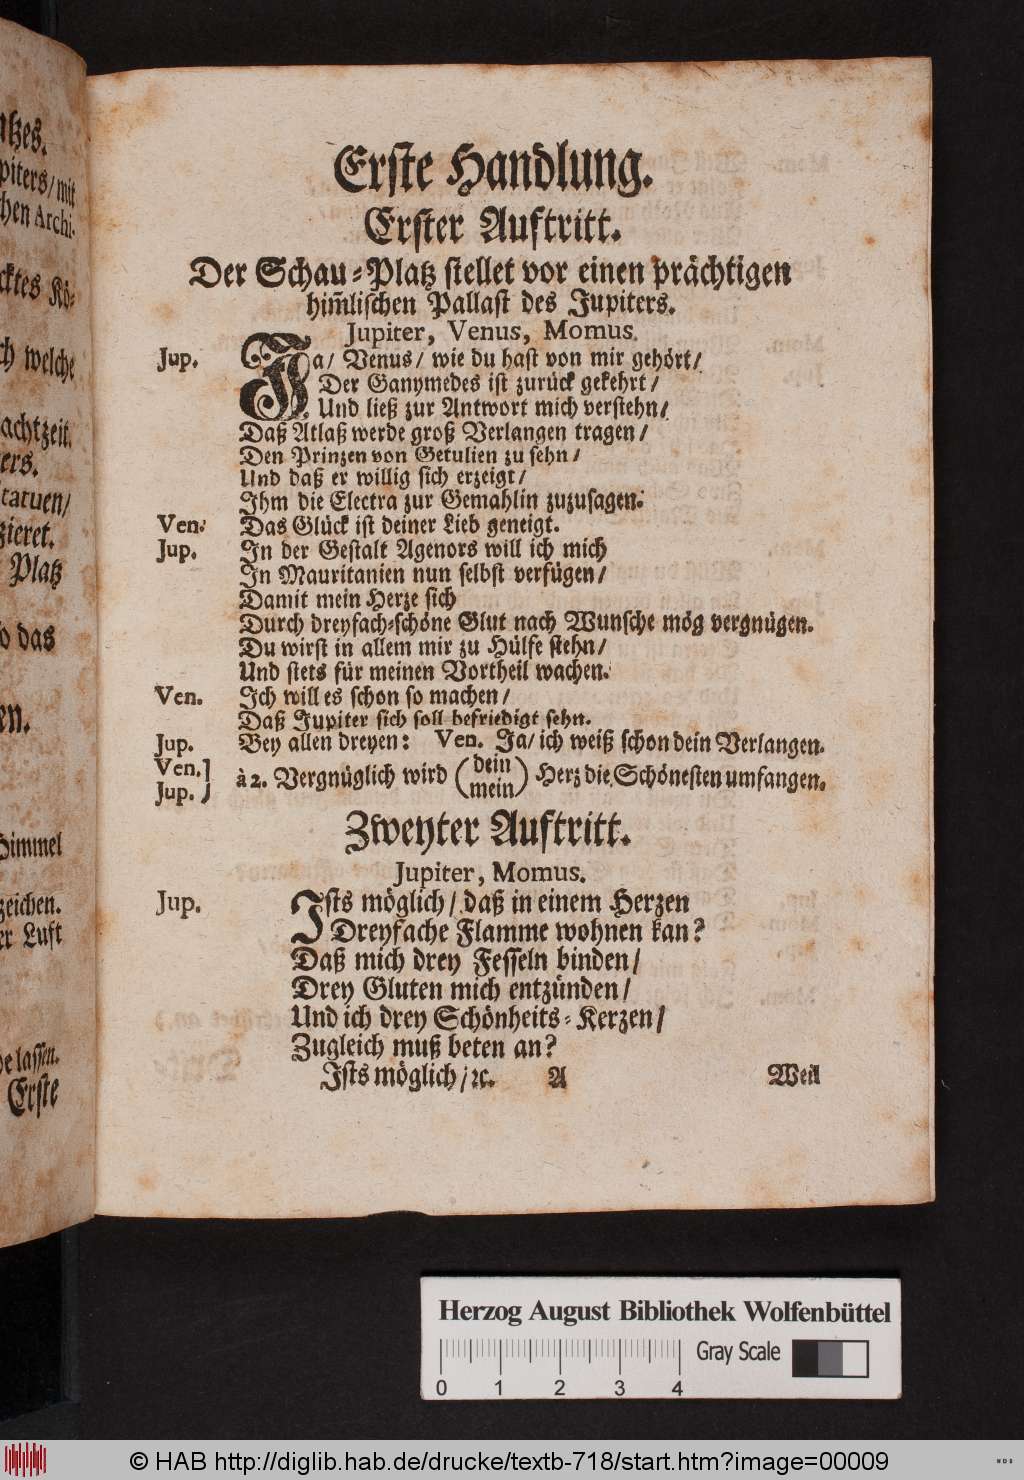 tzes.
piters/ mit
chen Archi-
cktes Kö-
ch welche
achtzeit.
ers.
tatuen/
zieret.
Platz
o das
en.
Himmel
zeichen.
er Lufft
de lassen.
Erste
Erste Handlung.
Erster Auftritt.
Der Schau-Platz stellet vor einen prächtigen
him̃lischen Pallast des Jupiters.
Jupiter, Venus, Momus.
Jup. Ja/ Venus/ wie du hast von mir gehört/
Der Ganymedes ist zurück gekehrt/
Und ließ zur Antwort mich verstehn/
Daß Atlaß werde groß Verlangen tragen/
Den Prinzen von Getulien zu sehn/
Und daß er willig sich erzeigt/
Ihm die Electra zur Gemahlin zuzusagen.
Ven. Das Glück ist deiner Lieb geneigt.
Jup. In der Gestalt Agenors will ich mich
In Mauritanien nun selbst verfügen/
Damit mein Herze sich
Durch dreyfach-schöne Glut nach Wunsche mög vergnügen.
Du wirst in allem mir zu Hülfe stehn/
Und stets für meinen Vortheil wachen.
Ven. Ich will es schon so machen/
Daß Jupiter sich soll befriedigt sehn.
Jup. Bey allen dreyen: Ven. Ja/ ich weiß schon dein Verlangen.
Ven.] Jup.] à 2. Vergnüglich wird (dein mein) Herz die Schönesten umfangen.
Zweyter Auftritt.
Jupiter, Momus.
Jup. Ists möglich/ daß in einem Herzen
Dreyfache Flamme wohnen kan?
Daß mich drey Fesseln binden/
Drey Gluten mich entzünden/
Und ich drey Schönheits-Kerzen/
Zugleich muß beten an?
Ists möglich/ ꝛc. A Weil
Herzog August Bibliothek Wolfenbüttel
Gray Scale
0 1 2 3 4
© HAB http://diglib.hab.de/drucke/textb-718/start.htm?image=00009